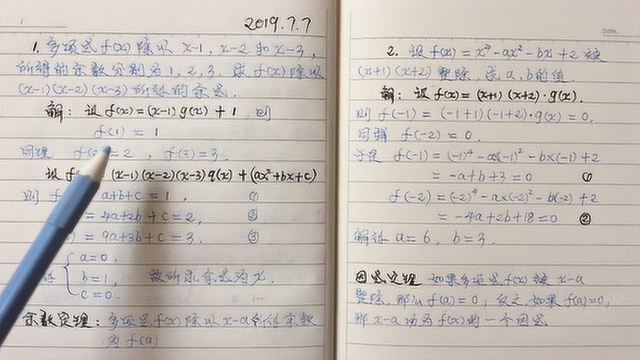 2019.7.7
1. 多项式 f(x) 除以 x-1, x-2 和 x-3,
所得的余数分别为 1, 2, 3. 求 f(x) 除以
(x-1)(x-2)(x-3) 所得的余式.
解: 设 f(x) = (x-1) g(x) + 1, 则
f(1) = 1
同理 = 2, f(3) = 3.
设 = (x-1)(x-2)(x-3) q(x) + (ax²+bx+c)
则 a+b+c = 1, ①
= 4a+2b+c = 2, ②
= 9a+3b+c = 3. ③
a=0,
b=1, 故所求余式为 x.
c=0.
余数定理: 多项式 f(x) 除以 x-a 所得余数
为 f(a)
Date.
2. 设 f(x) = x⁴ - ax² - bx + 2 被
(x+1)(x+2) 整除, 求 a, b 的值.
解: 设 f(x) = (x+1)(x+2)·g(x).
则 f(-1) = (-1+1)(-1+2)·g(x) = 0,
同理 f(-2) = 0.
于是 f(-1) = (-1)⁴ - a×(-1)² - b×(-1) + 2
= -a+b+3 = 0 ①
f(-2) = (-2)⁴ - a×(-2)² - b(-2) + 2
= -4a+2b+18 = 0 ②
解得 a=6, b=3.
因式定理 如果多项式 f(x) 被 x-a
整除, 那么 f(a) = 0; 反之, 如果 f(a)=0,
那 x-a 为 f(x) 的一个因式